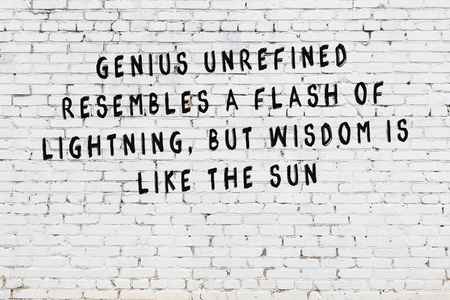 GENIUS UNREFINED
RESEMBLES A FLASH OF
LIGHTNING, BUT WISDOM IS
LIKE THE SUN